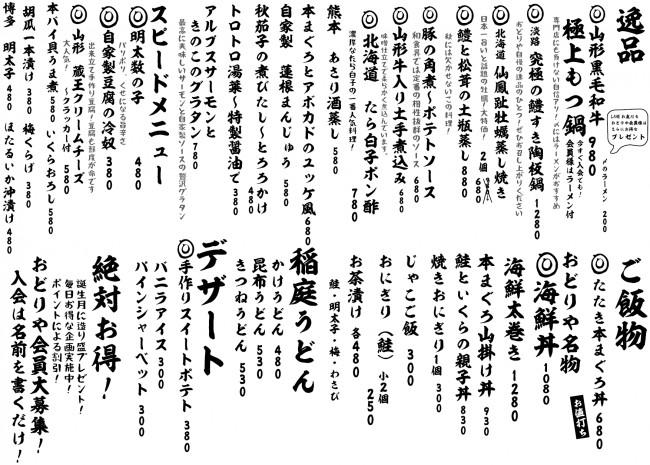 逸品
◎山形黒毛和牛
極上もつ鍋 980
今すぐ入会でも!
会員様はラーメン付
〆のラーメン 200
LINEお友だち
おどりや会員様は
もちろんお得な
プレゼント
専門店にも負けない自信アリ!〆にはラーメンがおすすめ
◎淡路 究極の鱧すき陶板鍋 1280
おどりや自慢の逸品のひとつ!ぜひお召し上がりください
◎北海道 仙鳳趾牡蠣蒸し焼き 2個 680
日本一旨いと話題の牡蠣!大特価!
◎鱧と松茸の土瓶蒸し 880
秋には欠かせないこの料理!
◎豚の角煮~ポテトソース
和食具では定番の相性抜群のソース 680
◎山形牛入り土手煮込み 680
味噌仕立てで柔らかく煮込んでいます。
◎北海道 たら白子ポン酢 780
濃厚なたら白子の一番人気料理!
熊本 あさり酒蒸し 580
本まぐろとアボカドのユッケ風 680
自家製 蓮根まんじゅう 580
秋茄子の煮びたし~とろろかけ 480
トロトロ湯葉~特製醤油で 380
アルプスサーモンと
きのこのグラタン 780
最高に美味しいサーモンと自家製ソースの贅沢グラタン
スピードメニュー
◎明太数の子 480
パリポリ、くせになる旨辛さ
◎自家製豆腐の冷奴 380
出来立て手作り豆腐!豆腐も鮮度が命です
◎山形 蔵王クリームチーズ
大人気! ~クラッカー付 580
本バイ貝うま煮 580 いくらおろし 580
胡瓜一本漬け 380 梅くらげ 380
博多 明太子 480 ほたるいか沖漬け 480
ご飯物
◎たたき本まぐろ丼 680
おどりや名物
◎海鮮丼 1080
お値打ち
海鮮太巻き 1280
本まぐろ山掛け丼 930
鮭といくらの親子丼 830
焼きおにぎり 1個 300
じゃこご飯 300
おにぎり(鮭)小2個 250
お茶漬け 各480
鮭・明太子・梅・わさび
稲庭うどん
かけうどん 480
昆布うどん 530
きつねうどん 530
デザート
◎手作りスイートポテト 380
バニラアイス 300
パインシャーベット 300
絶対お得!
誕生月に造り盛プレゼント!
毎日お得な企画実施中!
ポイントによる割引!
おどりや会員大募集!
入会は名前を書くだけ!